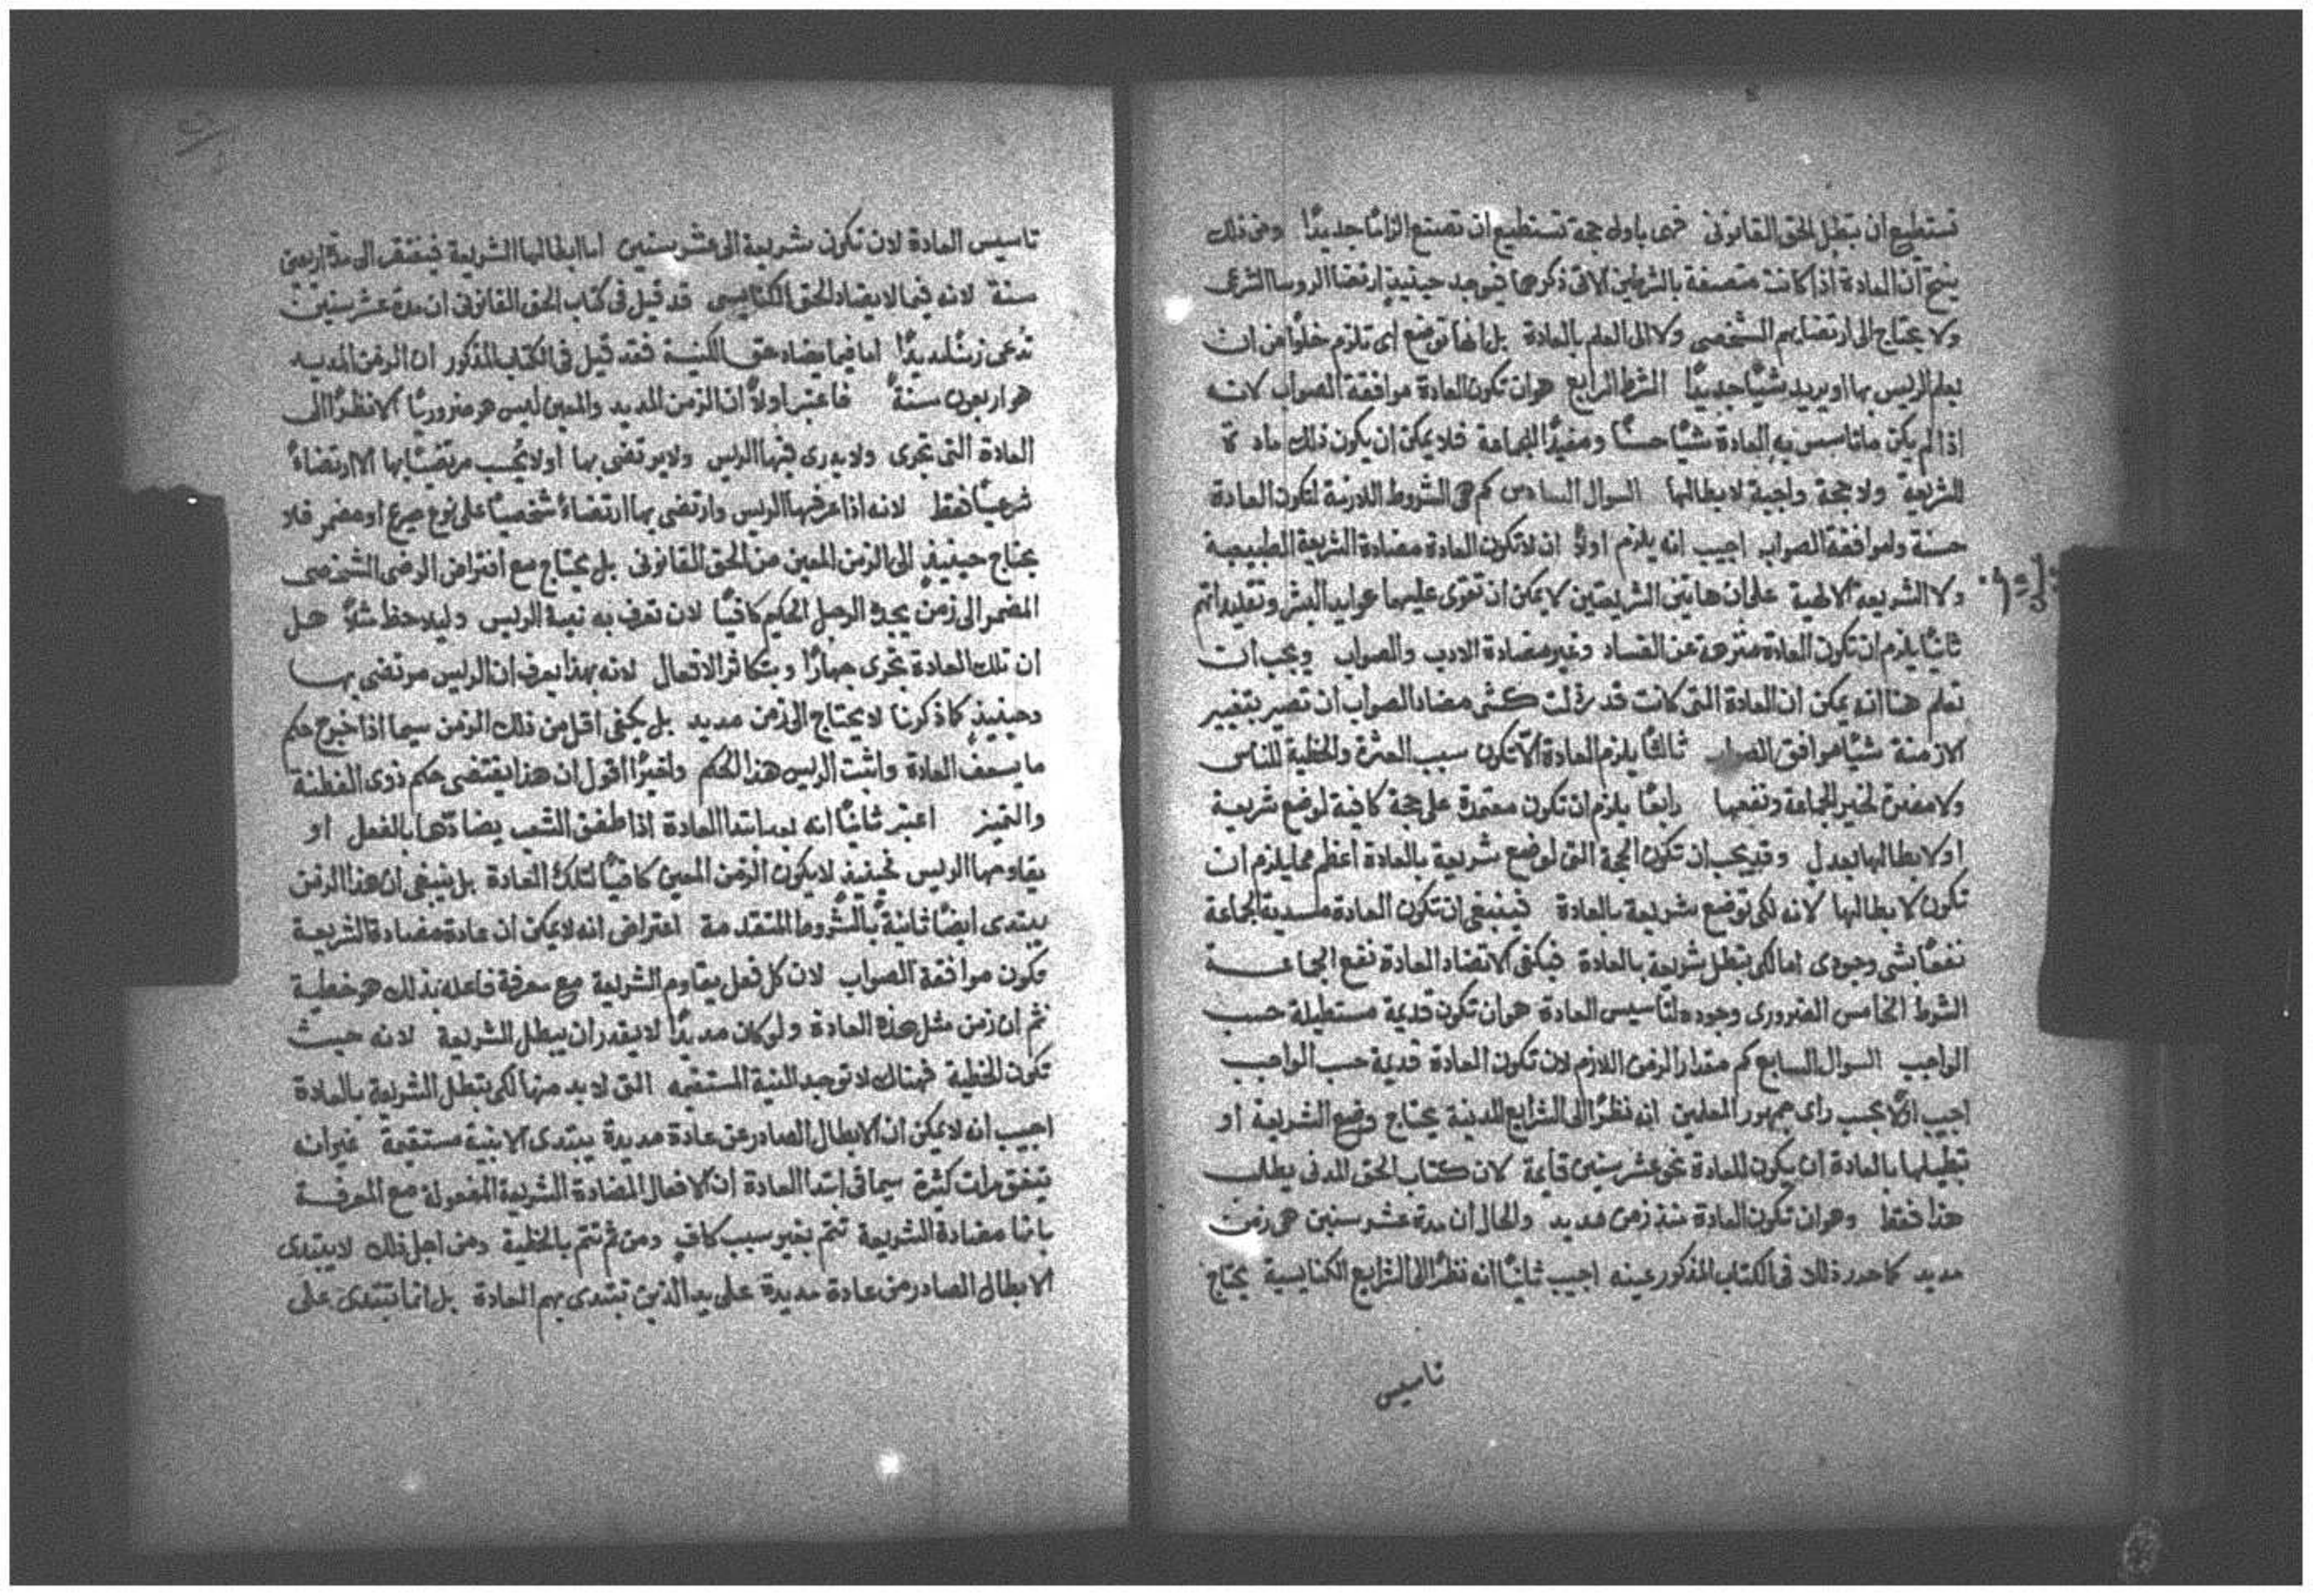 تستطيع ان تبطل الحق القانوني فهي باولى حجة تستطيع ان تصنع الزامًا جديدًا ومن ذلك
ينتج ان العادة اذا كانت متصفة بالشرطين الاتي ذكرهما فيوجد حينيذٍ ارتضا الروسا الشرعي
ولا يحتاج الى ارتضايهم الشخصي ولا الى العلم بالعادة بل انها توضع اي تلزم خلوًا من ان
يعلم الريس بها او يريد شيًا جديدًا الشرط الرابع هو ان تكون العادة موافقة الصواب لانه
اذا لم يكن ما تاسس به العادة شيًا حسنًا ومفيدًا للجماعة فلا يمكن ان يكون ذلك مادة
للشريعة ولا حجة واجبة لابطالها السوال السادس كم هي الشروط اللازمة لتكون العادة
حسنة وموافقة الصواب اجيب انه يلزم اولًا ان لا تكون العادة مضادة الشريعة الطبيعية
ولا الشريعة الالهية على ان هاتين الشريعتين لا يمكن ان تقوى عليهما عوايد البشر وتقليداتهم
ثانيًا يلزم ان تكون العادة منزهة عن الفساد وغير مضادة الادب والصواب ويجب ان
تعلم هنا انه يمكن ان العادة التي كانت قد رذلت كشي مضاد الصواب ان تصير بتغيير
الازمنة شيًا موافق الصواب ثالثًا يلزم العادة الّا تكون سبب العثرة والخطية للناس
ولا مضرة لخير الجماعة ونفعها رابعًا يلزم ان تكون معتمدة على حجة كافية لوضع شريعة
او لابطالها بعدل وقد يجب ان تكون الحجة التي لوضع شريعة بالعادة اعظم مما يلزم ان
تكون لابطالها لانه لكي توضع شريعة بالعادة فينبغي ان تكون العادة مسدية الجماعة
نفعًا بشي وجودي اما لكي تبطل شريعة بالعادة فيكفي الا تضاد العادة نفع الجماعة
الشرط الخامس الضروري وجوده لتاسيس العادة هو ان تكون قديمة مستطيلة حسب
الواجب السوال السابع كم مقدار الزمن اللازم لان تكون العادة قديمة حسب الواجب
اجيب اولًا بحسب راي جمهور المعلمين انه نظرًا الى الشرايع المدنية يحتاج وضع الشريعة او
تبطيلها بالعادة ان يكون للعادة نحو عشر سنين قايمة لان كتاب الحق المدني يطلب
هذا فقط وهو ان تكون العادة منذ زمن مديد والحال ان مدة عشر سنين هي زمن
مديد كما حدد ذلك في الكتاب المذكور عينه اجيب ثانيًا انه نظرًا الى الشرايع الكنايسية يحتاج
تاسيس
تاسيس العادة لان تكون شريعة الى عشر سنين اما ابطالها الشريعة فيفتقر الى مدة اربعين
سنة لانه فيما لا يضاد الحق الكنايسي قد قيل في كتاب الحق القانوني ان مدة عشر سنين
تُدعى زمنًا مديدًا اما فيما يضاد حق الكنيسة فقد قيل في الكتاب المذكور ان الزمن المديد
هو اربعون سنةً فاعتبر اولًا ان الزمن المديد والمعين ليس هو ضروريًا الا نظرًا الى
العادة التي تجري ولا يدري فيها الريس ولا يرتضي بها او لا يُحسب مرتضيًا بها الا ارتضاءً
شرعيًا فقط لانه اذا عرفها الريس وارتضى بها ارتضاءً شخصيًا على نوع صريح او مضمر فلا
يحتاج حينيذٍ الى الزمن المعين من الحق القانوني بل يحتاج مع افتراض الرضى الشخصي
المضمر الى زمنٍ يجده الرجل الحكيم كافيًا لان تعرف به نية الريس وليلاحظ مثلًا هل
ان تلك العادة تجري جهارًا وبتكاثر الافعال لانه بهذا يعرف ان الريس مرتضي بها
وحينيذٍ كما ذكرنا لا يحتاج الى زمن مديد بل يكفي اقل من ذلك الزمن سيما اذا خرج حكم
ما يسعف العادة واثبت الريس هذا الحكم واخيرًا اقول ان هذا يقتضي حكم ذوي الفطنة
والتمييز اعتبر ثانيًا انه بعد ابتدا العادة اذا طفق الشعب يضاددها بالفعل او
يقاومها الريس فحينيذٍ لا يكون الزمن المعين كافيًا لتلك العادة بل ينبغي ان هذا الزمن
يبتدي ايضًا ثانيةً بالشروط المتقدمة اعتراض انه لا يمكن ان عادة مضادة الشريعة
تكون موافقة الصواب لان كل فعل يقاوم الشريعة مع معرفة فاعله بذلك هو خطية
ثم ان زمن مثل هذه العادة ولو كان مديدًا لا يقدر ان يبطل الشريعة لانه حيث
تكون الخطية فهناك لا توجد النية المستقيمه التي لا بد منها لكي تبطل الشريعة بالعادة
اجيب انه لا يمكن ان الابطال الصادر عن عادة مديدة يبتدي الا بنية مستقيمة غير انه
يتفق مرات كثيرة سيما في ابتدا العادة ان الافعال المضادة الشريعة المفعولة مع المعرفة
بانها مضادة الشريعة تتم بغير سبب كافٍ ومن ثم تتم بالخطية ومن اجل ذلك لا يبتدي
الابطال الصادر من عادة مديدة على يد الذين تبتدي بهم العادة بل انما تبتدي على